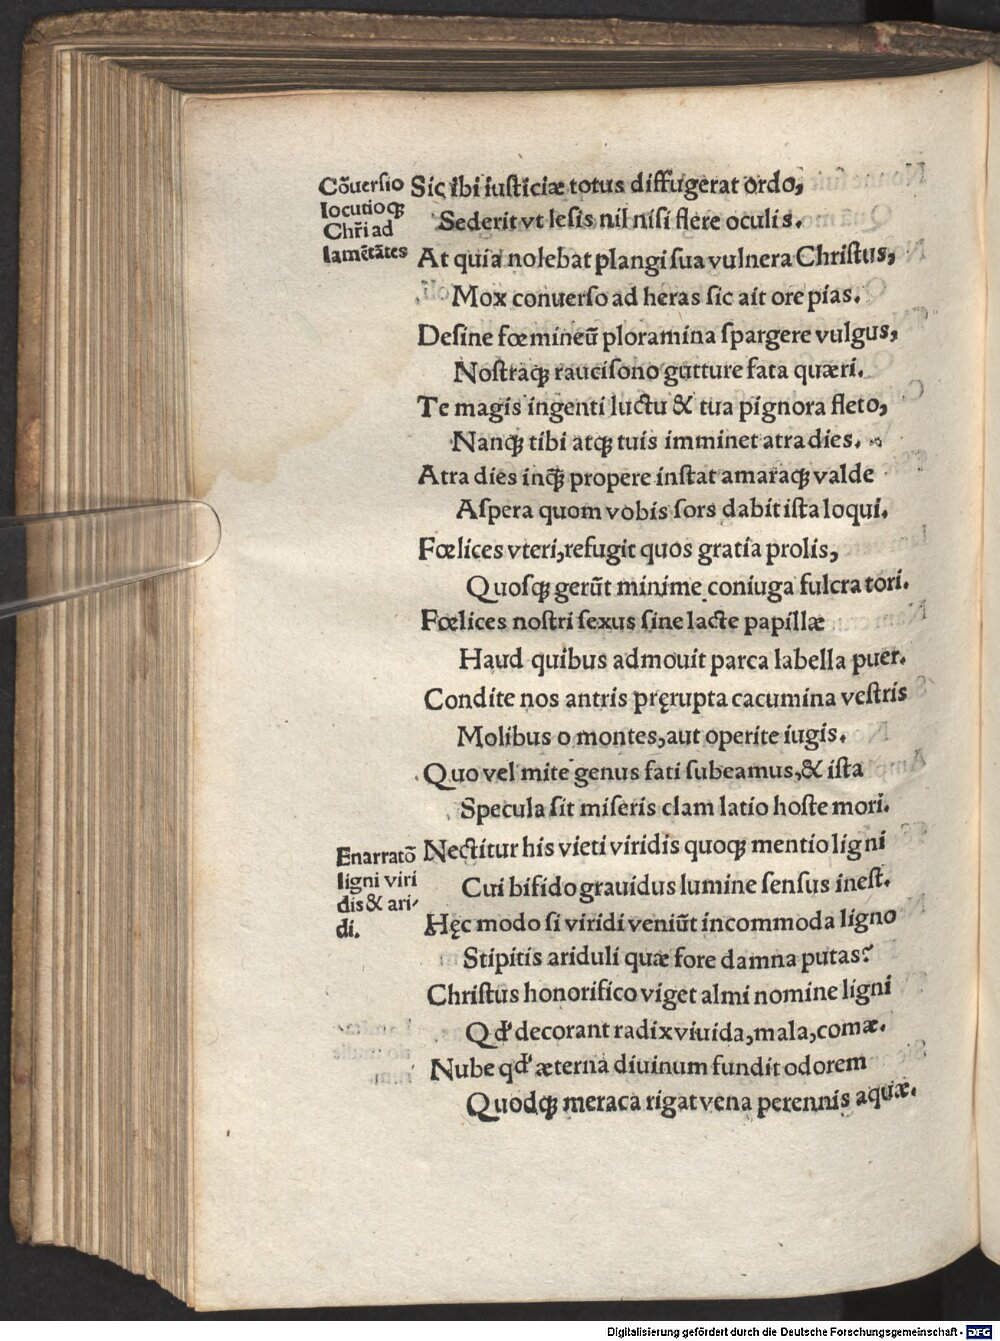 Cõuersio
locutioqꝫ
Chr̃i ad
lamẽtãtes
Sic ibi iusticiæ totus diffugerat ordo,
Sederit vt lesis nil nisi flere oculis.
At quia nolebat plangi sua vulnera Christus,
Mox conuerso ad heras sic ait ore pias.
Desine fœmineũ ploramina spargere vulgus,
Nostraqꝫ raucisono gutture fata quæri.
Te magis ingenti luctu & tua pignora fleto,
Nanqꝫ tibi atqꝫ tuis imminet atra dies.
Atra dies inq̃ꝫ propere instat amaraqꝫ valde
Aspera quom vobis sors dabit ista loqui.
Fœlices vteri, refugit quos gratia prolis,
Quosqꝫ gerũt minime coniuga fulcra tori.
Fœlices nostri sexus sine lacte papillæ
Haud quibus admouit parca labella puer.
Condite nos antris pręrupta cacumina vestris
Molibus o montes, aut operite iugis.
Quo vel mite genus fati subeamus, & ista
Specula sit miseris clam latio hoste mori.
Enarratõ
ligni viri
dis & ari/
di.
Nectitur his vieti viridis quoqꝫ mentio ligni
Cui bifido grauidus lumine sensus inest.
Hęc modo si viridi veniũt incommoda ligno
Stipitis ariduli quæ fore damna putas?
Christus honorifico viget almi nomine ligni
Qd' decorant radix viuida, mala, comæ.
Nube qd' æterna diuinum fundit odorem
Quodqꝫ meraca rigat vena perennis aquæ.
Digitalisierung gefördert durch die Deutsche Forschungsgemeinschaft - DFG